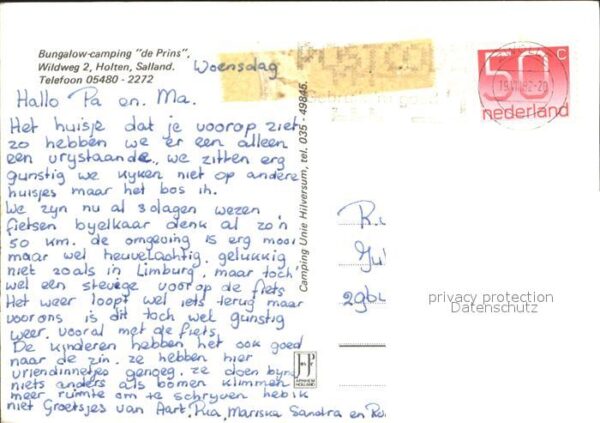 Bungalow-camping "de Prins",
Wildweg 2, Holten, Salland.
Telefoon 05480 - 2272
Woensdag
Hallo Pa en. Ma.
Het huisje dat je voorop ziet
zo hebben we er een alleen
een vrystaande, we zitten erg
gunstig we kyken niet op andere
huisjes maar het bos in.
We zyn nu al 3 dagen wezen
fietsen byelkaar denk al zo'n
50 km. de omgeving is erg mooi
maar wel heuvelachtig, gelukkig
niet zoals in Limburg, maar toch
wel een stevige voor op de fiets
Het weer loopt wel iets terug maar
voor ons is dit toch wel gunstig
weer. vooral met de fiets.
De kinderen hebben het ook goed
naar de zin. ze hebben hier
vriendinnetjes genoeg. ze doen byna
niets anders als bomen klimmen
meer ruimte om te schryven heb ik
niet Groetsjes van Aart, Ria, Mariska Sandra en
Camping Unie Hilversum, tel. 035 - 49845.
JosPé
ARNHEM
HOLLAND
50 c
nederland
privacy protection
Datenschutz